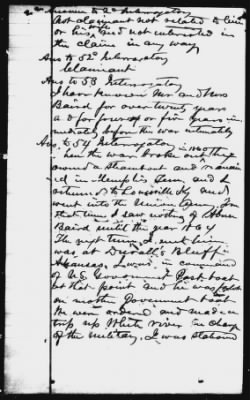 Answer to 2d Interrogatory
That claimant not related to him
or his and not interested in
the claim in any way
Ans to 52d Interrogatory
Claimant
Ans to 53 Interrogatory
I have known Mr and Mrs
Baird for over twenty years
and for four or five years im-
mediately before the war intimately
Ans. to 54 Interrogatory in 1860
When the war broke out they
owned a Steamboat and remain
ed in Memphis Tenn, and I
returned to Louisville Ky and
went into the Union Army, from
that time I saw nothing of Abner
Baird until the year 1864
The next time I met him
was at Duvall's Bluff
Arkansas, I was in command
of U.S. Government Post boat
at that point and he was pilot
on another Government boat
We were ordered and made a
trip up White river in charge
of the military. I was stationed